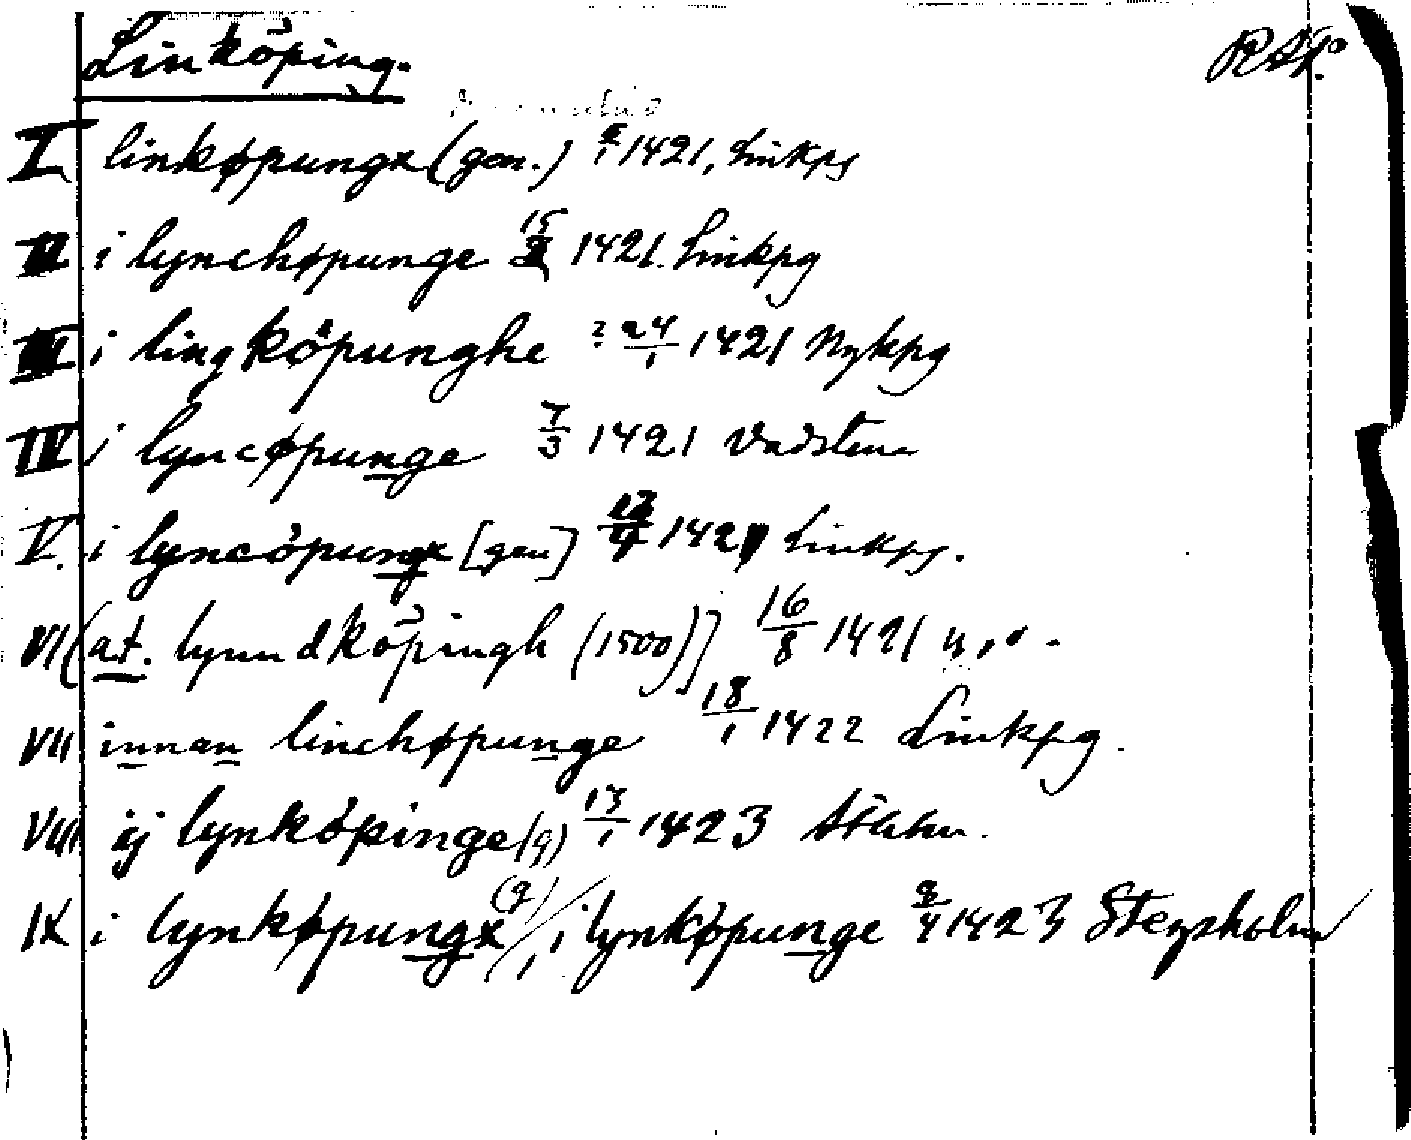 Linköping. RAp.
I linkøpungx (gen.) 1421, Linkpg
II i lynchøpunge 15 1421. Linkpg
III i lingköpunghe ? 24/1 1421 Nykpg
IV i lyncøpunge 7/3 1421 Vadstena
V. i lyncöpungx [gen] 1421 Linkpg.
VI (at. lynndköpingh (1500)] 16/8 1421
VII innan linchøpunge 18/1 1422 Linkpg.
VIII ij lynköpinge (g) 13/1 1423 Sthlm.
IX i lynkøpungx (g), i lynkøpunge 1423 Stegsholm